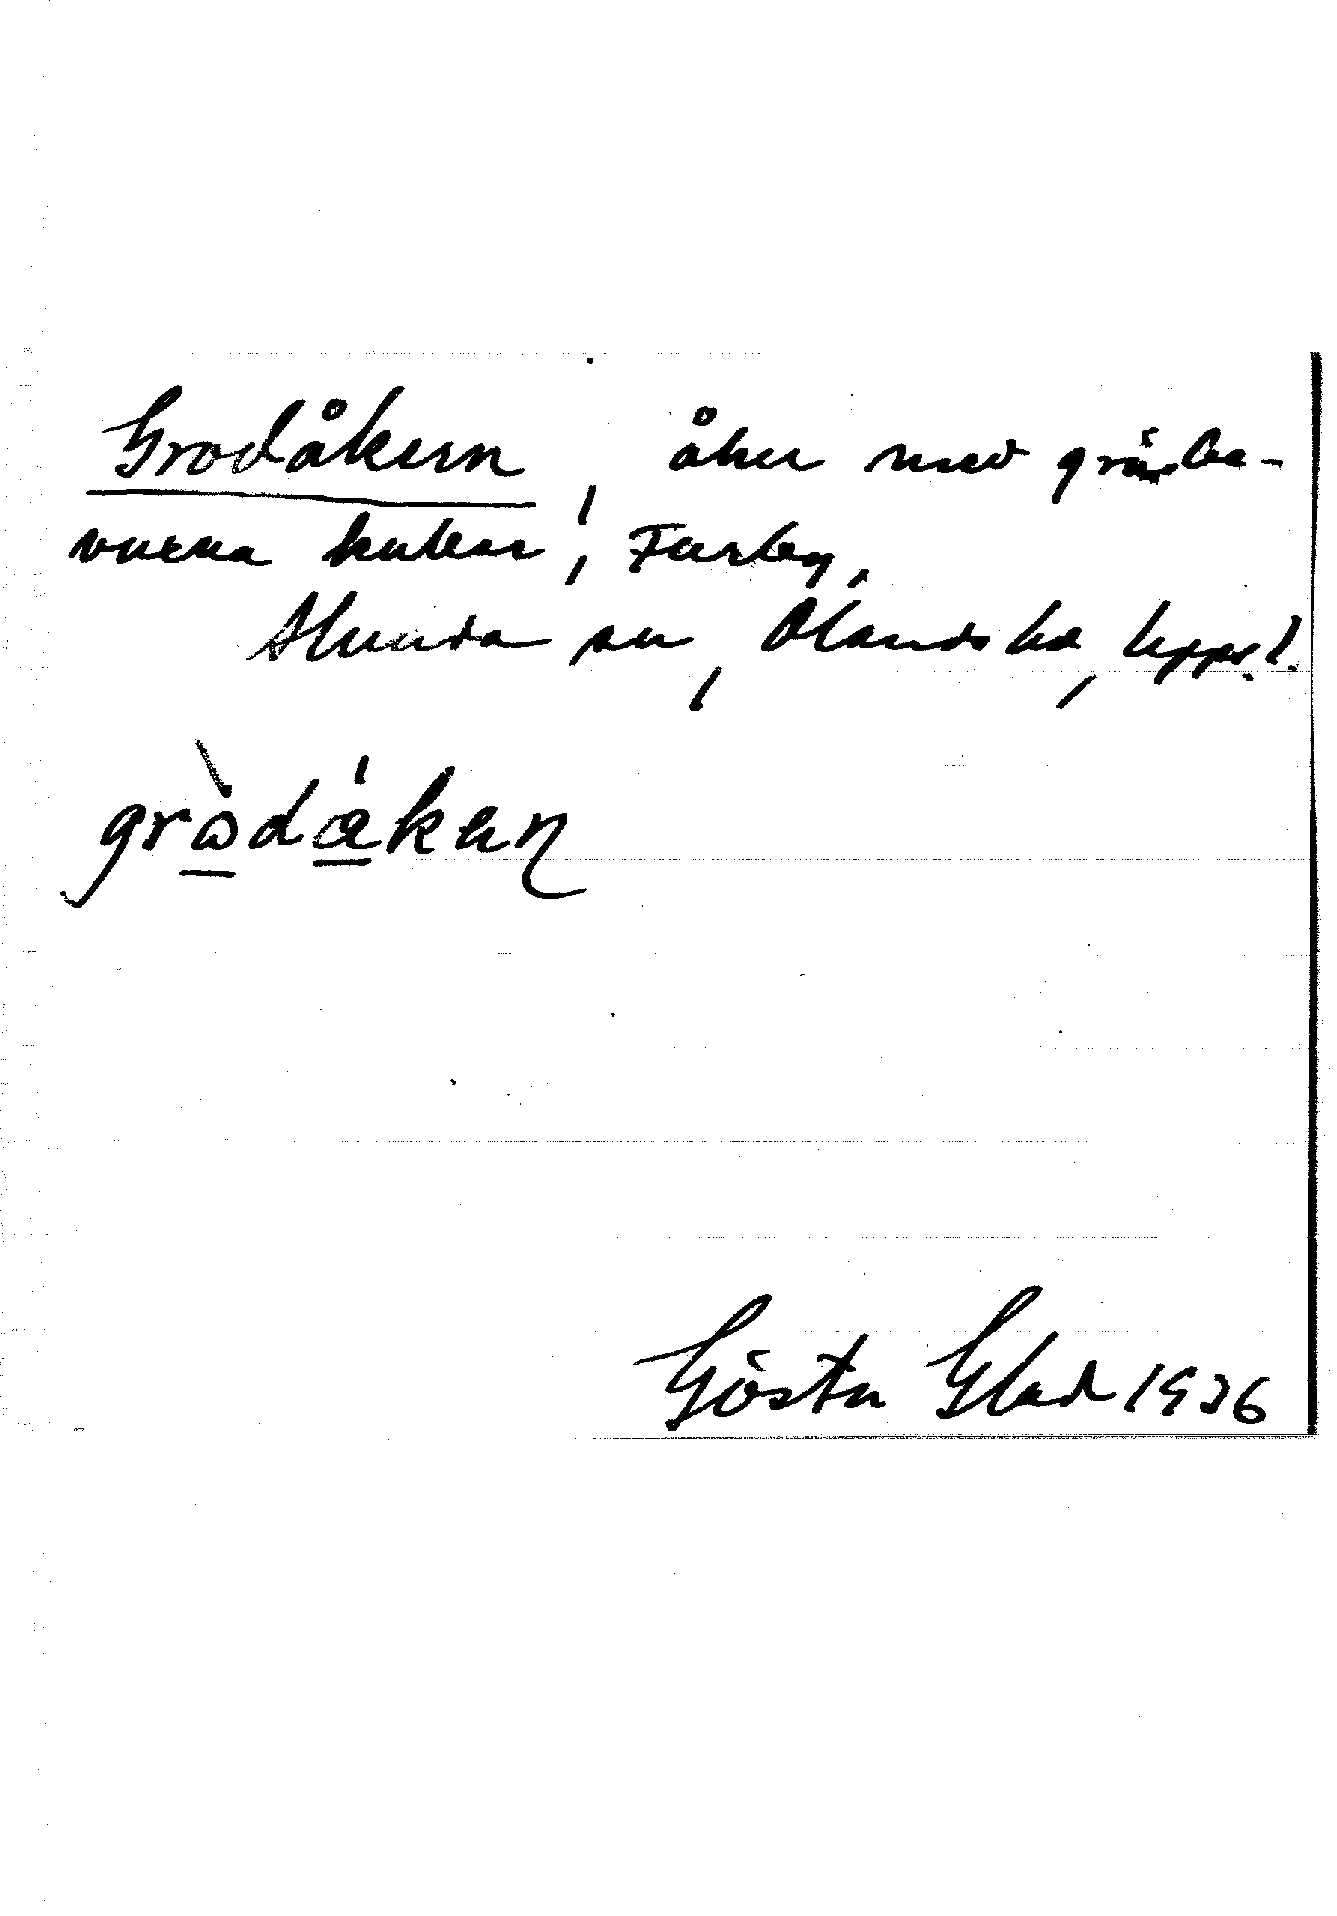 Grodåkern, åker med gräsbe-
vuxna kullar, Foresby,
Alunda sn, Olands hd, Uppl.
gròdåkeɳ
Gösta Glad 1936